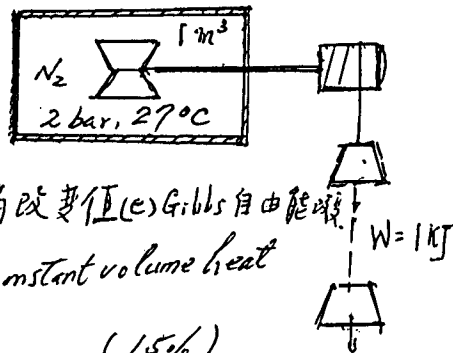 1 m³
N₂
2 bar, 27°C
改變值(e)Gibbs自由能
W=1KJ
nstant volume heat
(15%)